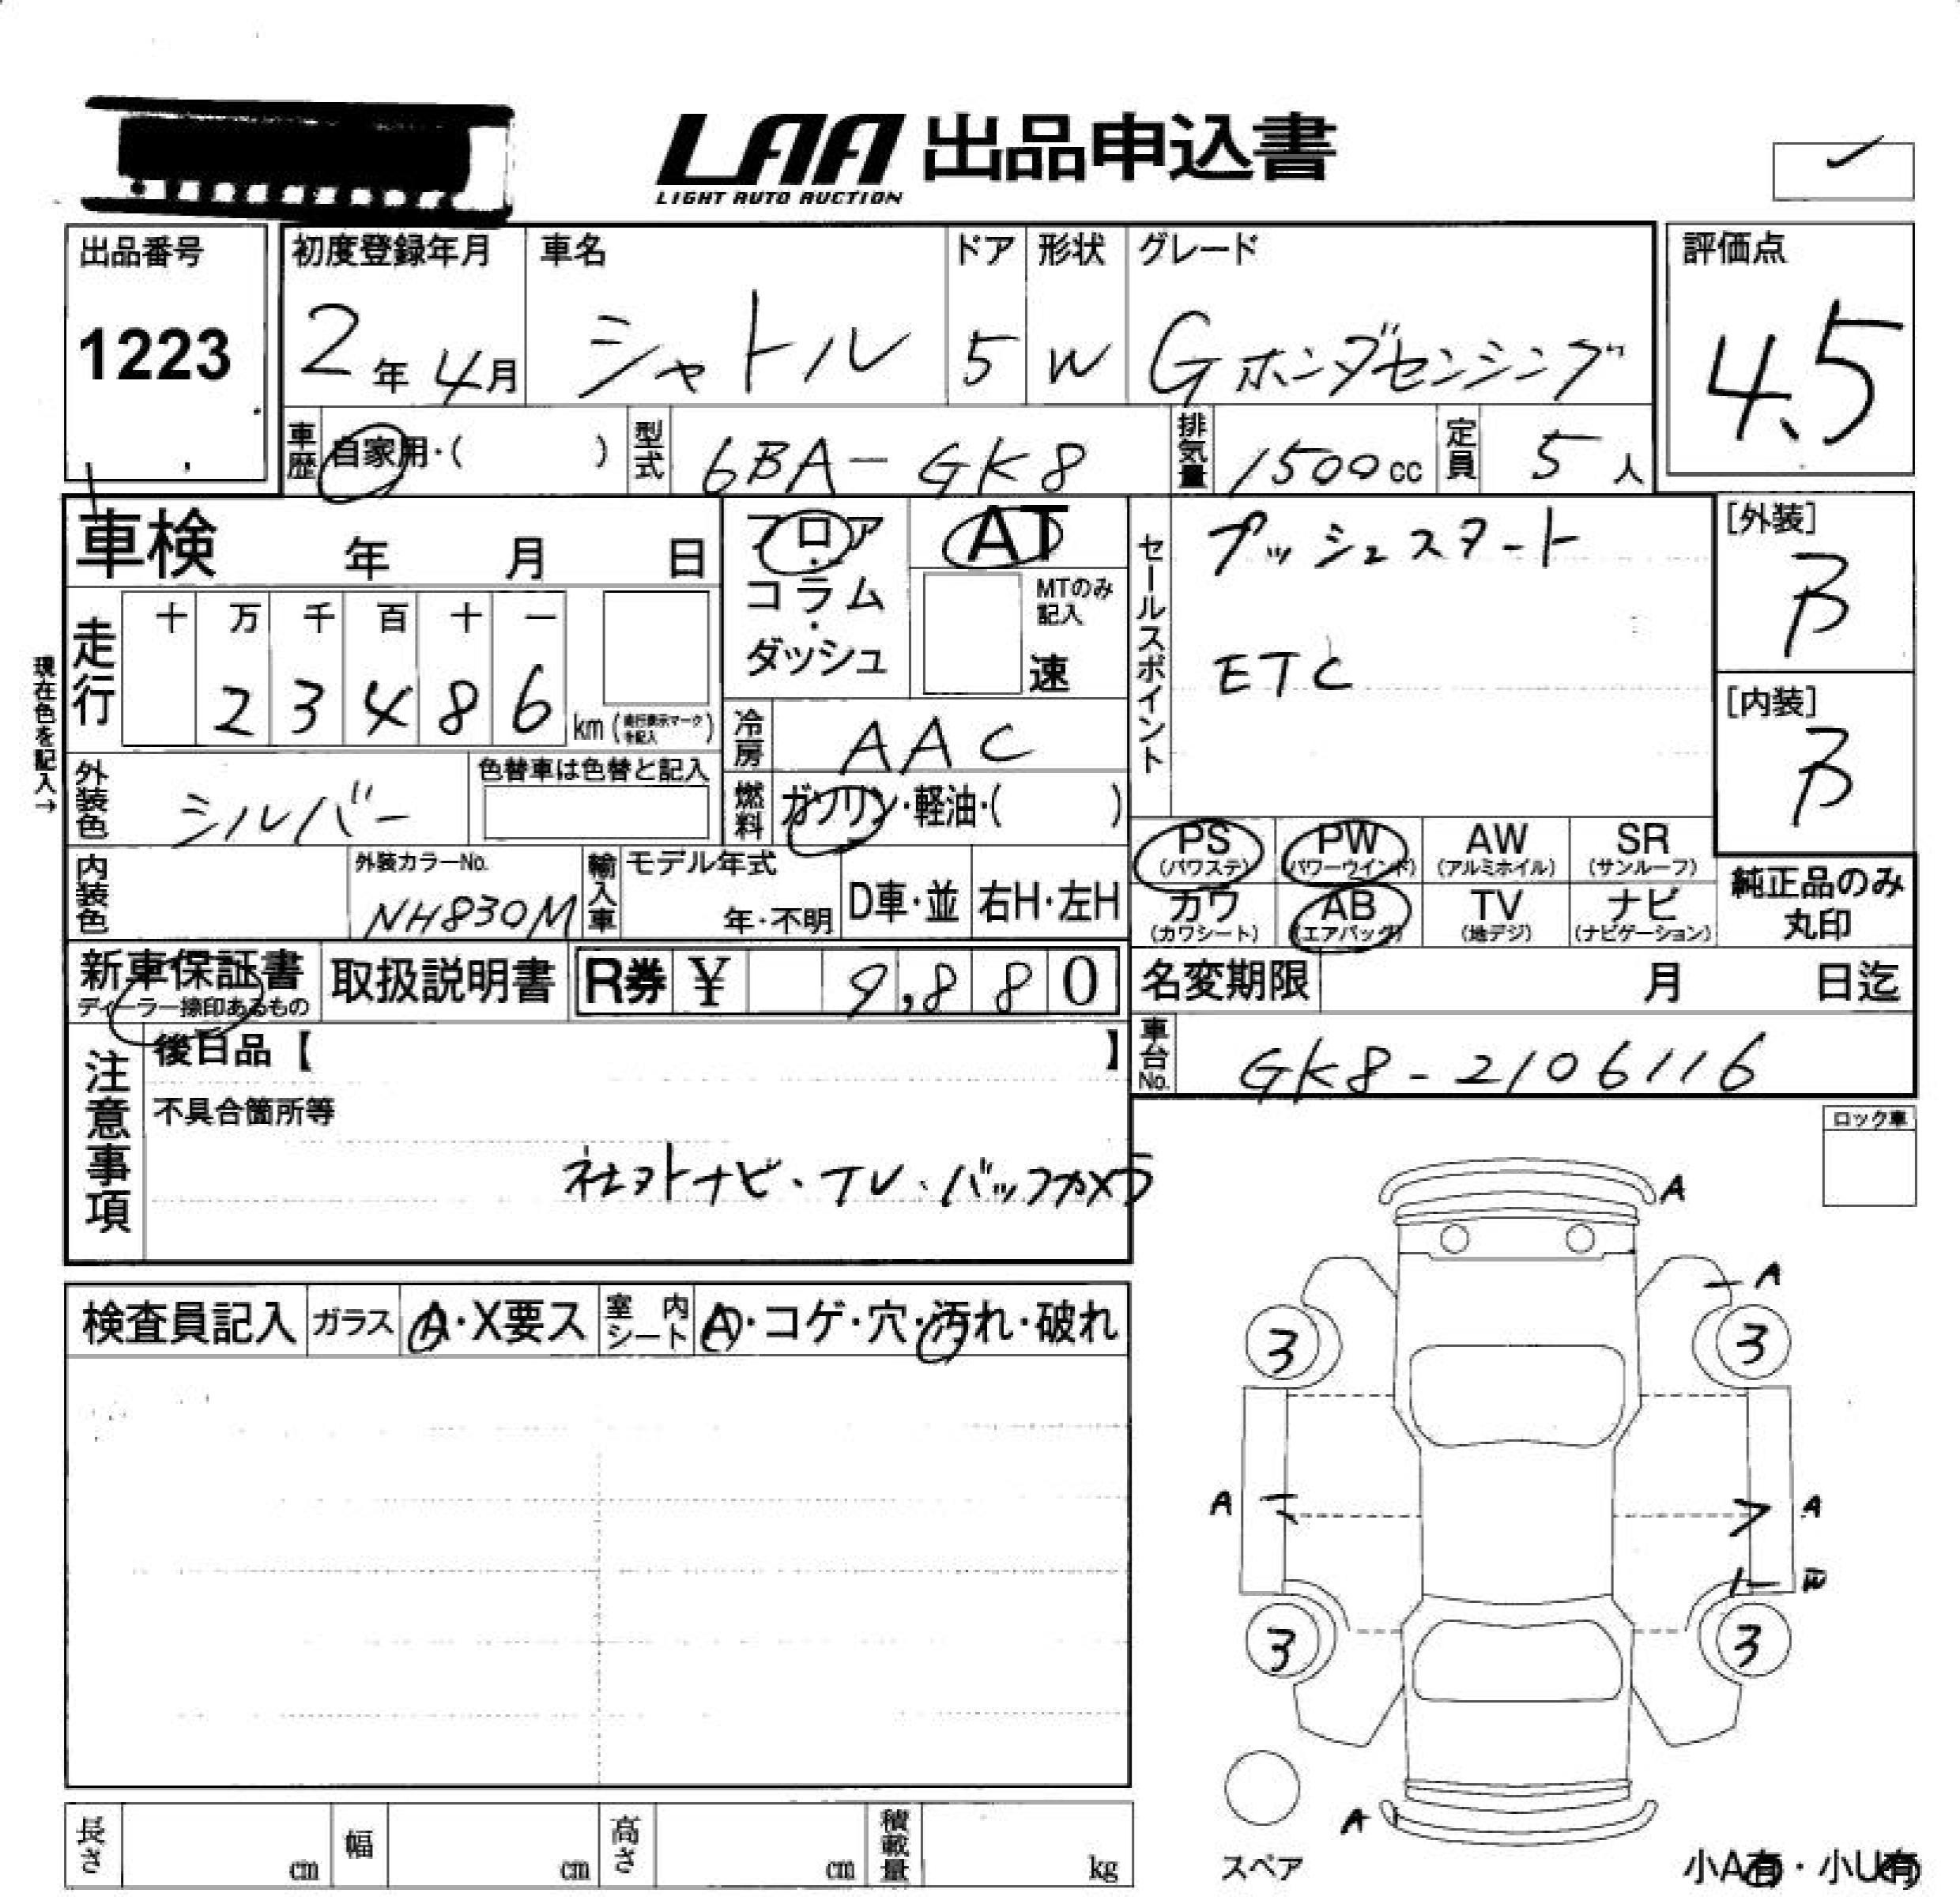 LAA 出品申込書
LIGHT AUTO AUCTION
出品番号 初度登録年月 車名 ドア 形状 グレード 評価点
1223 2年 4月 シャトル 5 W Gホンダセンシング 4.5
車歴 自家用・( ) 型式 6BA-GK8 排気量 1500cc 定員 5人
車検 年 月 日 フロア・コラム・ダッシュ AT MTのみ記入 速
セールスポイント プッシュスタート
ETC
[外装] B
[内装] B
現在色を記入→
走行 十 万 千 百 十 一
2 3 4 8 6 km (走行表示マークを記入)
冷房 AAC
外装色 シルバー 色替車は色替と記入 燃料 ガソリン・軽油・( )
PS (パワステ) PW (パワーウインド) AW (アルミホイル) SR (サンルーフ)
内装色 外装カラーNo. NH830M 輸入車 モデル年式 年・不明 D車・並 右H・左H
カワ (カワシート) AB (エアバック) TV (地デジ) ナビ (ナビゲーション) 純正品のみ丸印
新車保証書 ディーラー捺印あるもの 取扱説明書 R券 ¥ 9,880 名変期限 月 日迄
注意事項 後日品【 】 車台No. GK8-2106116
不具合箇所等
社外ナビ・TV・バックカメラ
ロック車
検査員記入 ガラス A・X要ス 室内シート A・コゲ・穴・汚れ・破れ
A
A
3 3
A A
W
3 3
A
スペア
小A有・小U有
長さ cm 幅 cm 高さ cm 積載量 kg